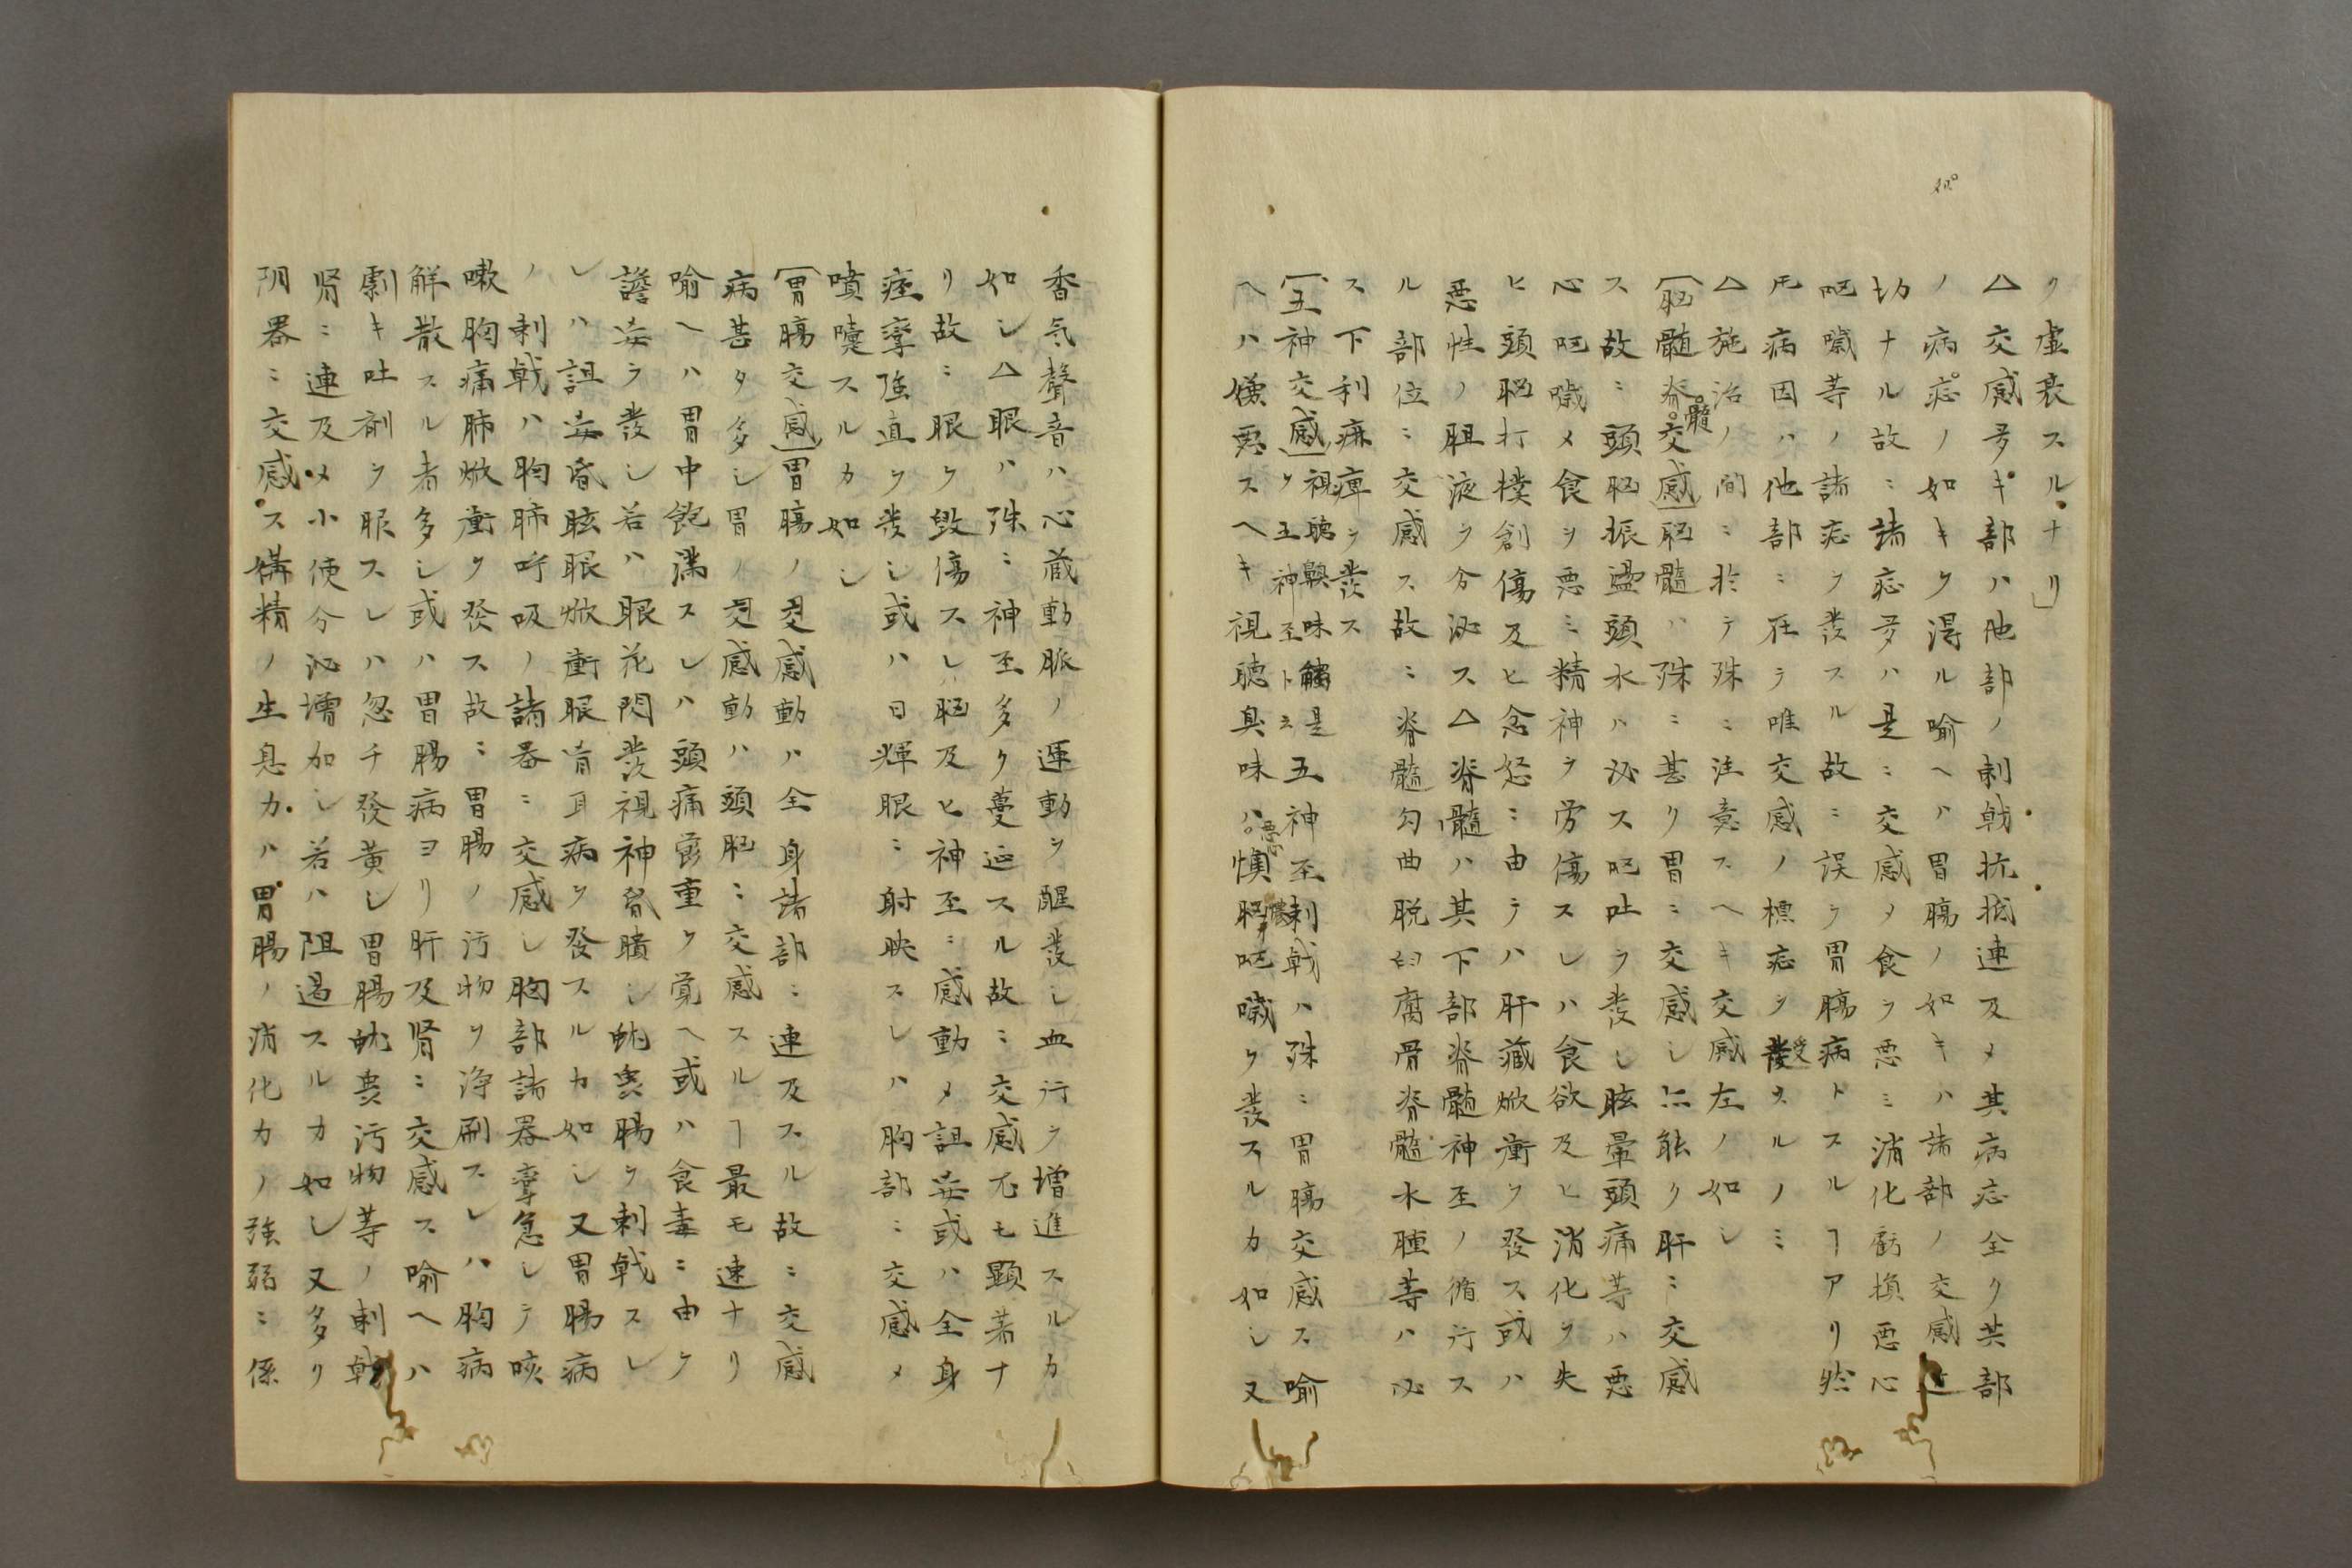 ク虚衰スルナリ」
△交感多キ部ハ他部ノ刺戟抗抵連及メ其病症全ク其部
ノ病症ノ如キヲ得ル喩ヘハ胃腸ノ如キハ諸部ノ交感
切ナル故ニ諸症多ハ是ニ交感メ食ヲ悪ミ消化虧損悪心
呕噦等ノ諸症ヲ発スル故ニ誤ラ胃腸病トスルヿアリ然
𪜈病因ハ他部ニ在テ唯交感ノ標症ヲ発スルノミ
△施治ノ間ニ於テ殊ニ注意スヘキ交感左ノ如し
〔脳髄脊髄交感〕脳髄ハ殊ニ甚ク胃ニ交感し亦能ク肝ニ交感
ス故ニ頭脳振盪頭水ハ必ス呕吐ヲ発し眩暈頭痛等ハ悪
心呕噦メ食ヲ悪ミ精神ヲ労傷スレハ食欲及ヒ消化ヲ失
ヒ頭脳打撲創傷及ヒ忿怒ニ由テハ肝臓焮衝ヲ発ス或ハ
悪性ノ胆液ヲ分泌ス△脊髄ハ其下部脊髄神至ノ循行ス
ル部位ニ交感ス故ニ脊髄勾曲脱臼腐骨脊髄水腫等ハ必
ス下利痲痺ヲ発ス
〔五神交感〕視聴齅味觸是ヲ五神至ト云 五神至刺戟ハ殊ニ胃腸交感ス喩
ヘハ僕悪スヘキ視聴臭味ハ悪懊憹呕噦ヲ発スルカ如し又
香気聲音ハ心蔵動脈ノ運動ヲ醒発し血行ヲ増進スルカ
如し△眼ハ殊ニ神至多ク蔓延スル故ニ交感尤モ顕著ナ
リ故ニ眼ヲ毀傷スレハ脳及ヒ神至ニ感動メ詛妄或ハ全身
痙攣強直ヲ発し或ハ日輝眼ニ射映スレハ胸部ニ交感メ
噴嚔スルカ如し
〔胃腸交感〕胃腸ノ交感動ハ全身諸部ニ連及スル故ニ交感
病甚タ多し胃ノ交感動ハ頭脳ニ交感スルヿ最モ速ナリ
喩ヘハ胃中飽満スレハ頭痛昏重ヲ覚ヘ或ハ食毒ニ由ケ
譫妄ヲ発し若ハ眼花閃発視神昏瞶し蚘蟲腸ヲ刺戟スレ
レハ詛妄昏眩眼焮衝眼盲耳病ヲ発スルカ如し又胃腸病
ノ刺戟ハ胸肺呼吸ノ諸器ニ交感し胸部諸器攣急しテ咳
嗽胸痛肺焮衝ヲ発ス故ニ胃腸ノ污物ヲ浄刷スレハ胸病
解散スル者多し或ハ胃腸病ヨリ肝及腎ニ交感ス喩ヘハ
劇キ吐剤ヲ服スレハ忽チ發黄し胃腸蚘蟲污物等ノ刺戟
腎ニ連及メ小便分泌増加し若ハ阻遏スルカ如し又多リ
阴器ニ交感ス搆精ノ生息力ハ胃腸ノ消化力ノ強弱ニ係